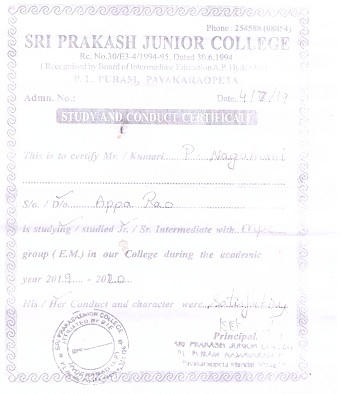 Phone : 254588 (08854)
SRI PRAKASH JUNIOR COLLEGE
Rc. No.30/E3-4/1994-95, Dated 30.6.1994
(Recognised by Board of Intermediate Education A.P. Hyderabad)
P. L. PURAM, PAYAKARAOPETA
Admn. No.: Date: 4/ /19
STUDY AND CONDUCT CERTIFICATE
This is to certify Mr. / Kumari. P. Nagamani
S/o. / D/o. Appa Rao
is studying / studied Jr. / Sr. Intermediate with
group (E.M.) in our College during the academic
year 2019 - 2020
His / Her Conduct and character were satisfactory
Principal
SRI PRAKASH JUNIOR COLLEGE
SRI PRAKASH JUNIOR COLLEGE